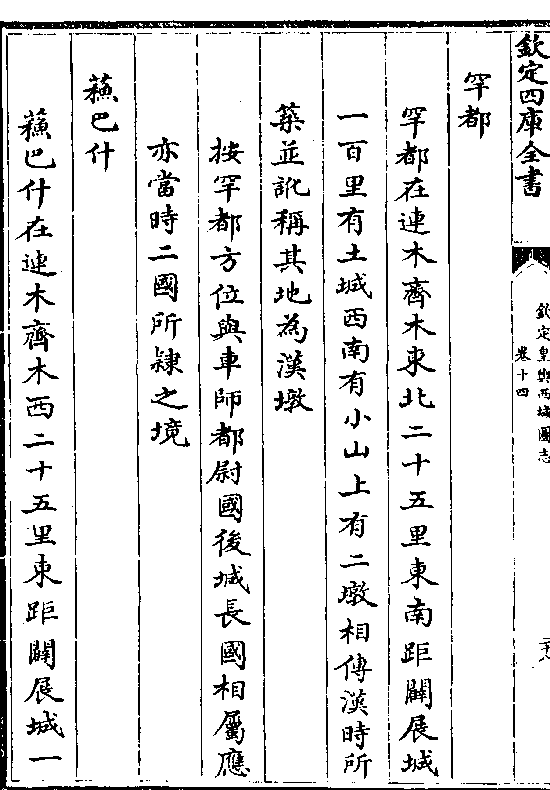 欽定四庫全書
欽定皇輿西域圖志
卷十四
罕都
罕都在連木齊木東北二十五里東南距闢展城
一百里有土城西南有小山上有二墩相傳漢時所
築並訛稱其地為漢墩
按罕都方位與車師都尉國後城長國相屬應
亦當時二國所隸之境
蘓巴什
蘓巴什在連木齊木西二十五里東距闢展城一